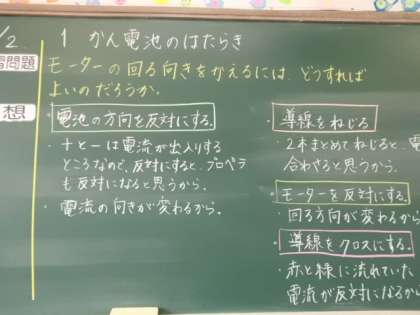 /2.
1 かん電池のはたらき
習問題
モーターの回る向きをかえるには、どうすれば
よいのだろうか。
想
電池の方向を反対にする。
・+と-は電流が出入りする
ところなので、反対にすると、プロペラ
も反対になると思うから。
・電流の向きが変わるから。
導線をねじる
・2本まとめてねじると、電
合わさると思うから。
モーターを反対にする。
・回る方向が変わるから
導線をクロスにする。
・赤と緑に流れていた
電流が反対になるか